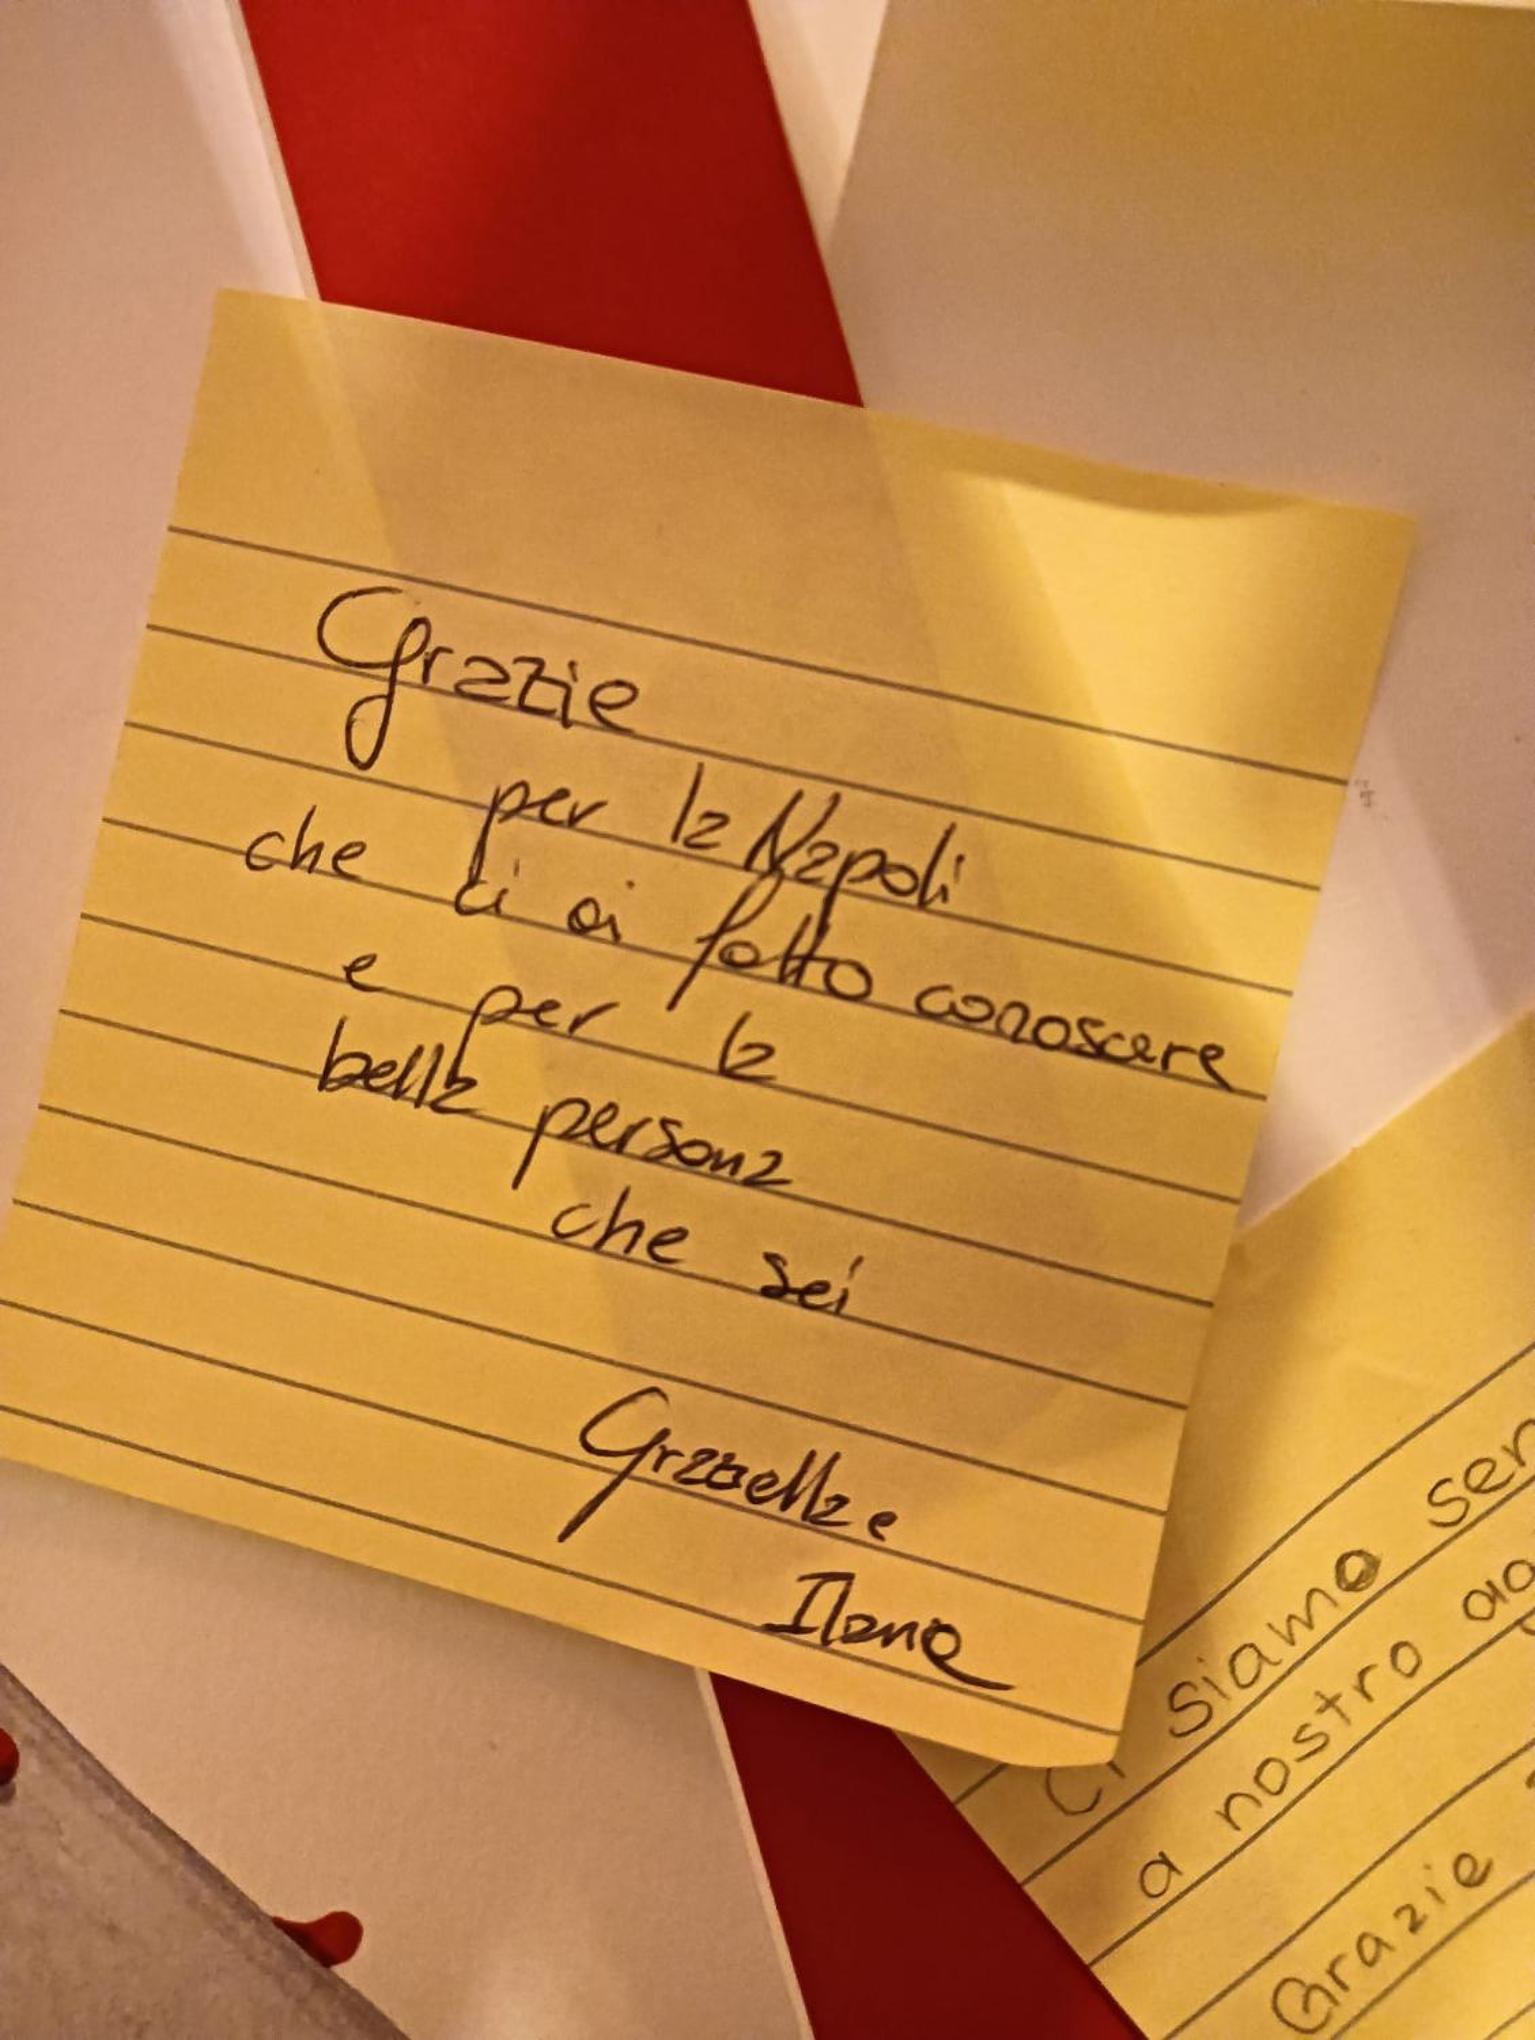 Grazie
per la Napoli
che ci ai fatto conoscere
e per la
bella persona
che sei
Graziella e
Ilana
Ci siamo
a nostro
Grazie